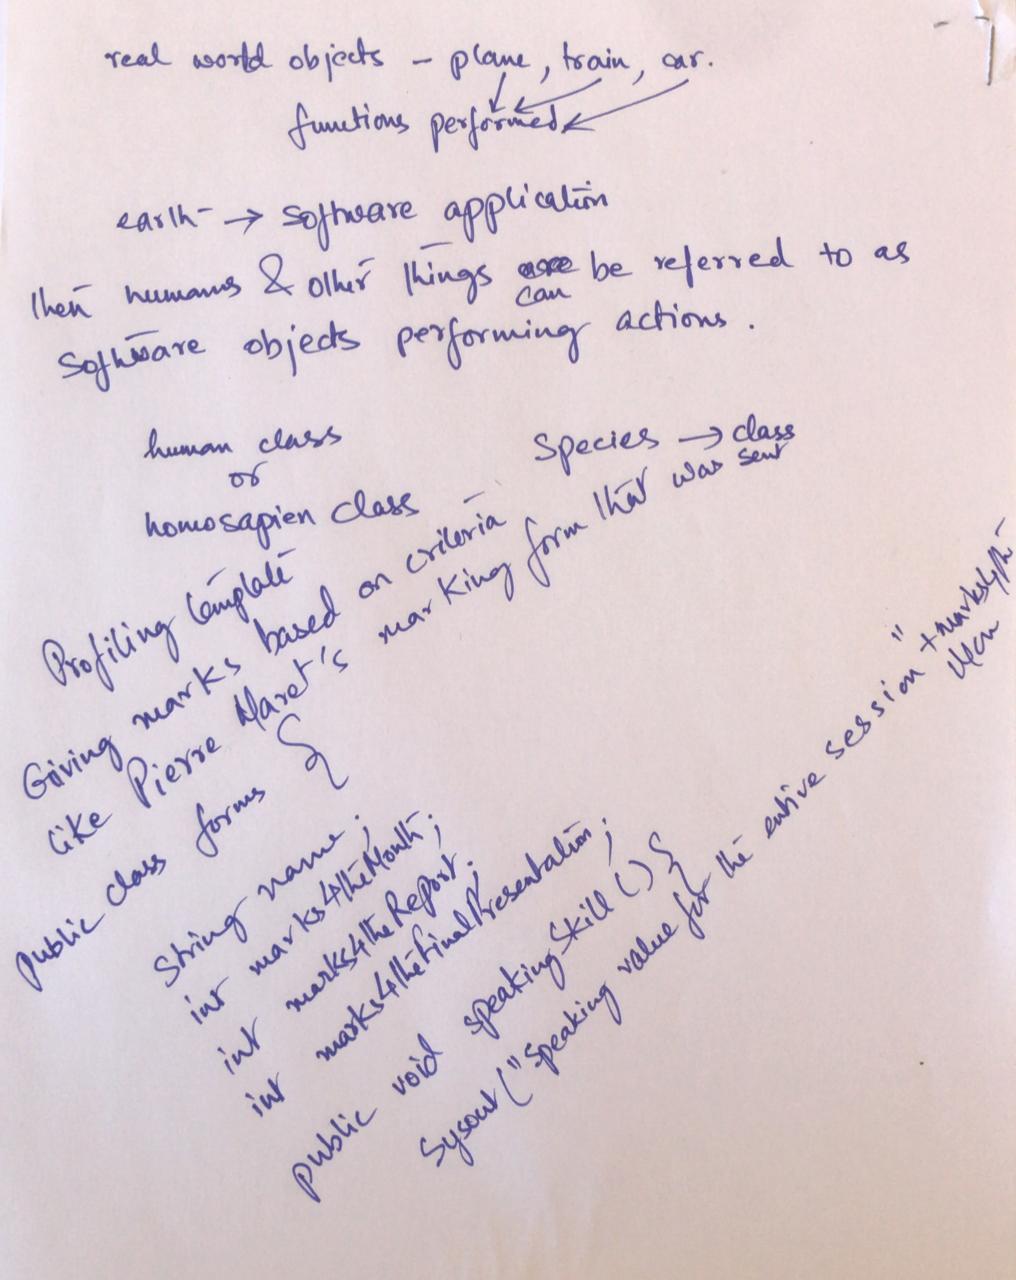 real world objects - plane, train, car.
functions performed
earth → software application
then humans & other things can be referred to as
software objects performing actions.
human class
or
homosapien class
Species → class
Profiling template
Giving marks based on criteria
like Pierre Maret's marking form that was sent
public class forms {
String name;
int marks4theMonth;
int marks4theReport;
int marks4thefinalPresentation;
public void speakingSkill() {
Sysout("Speaking value for the entire session" +